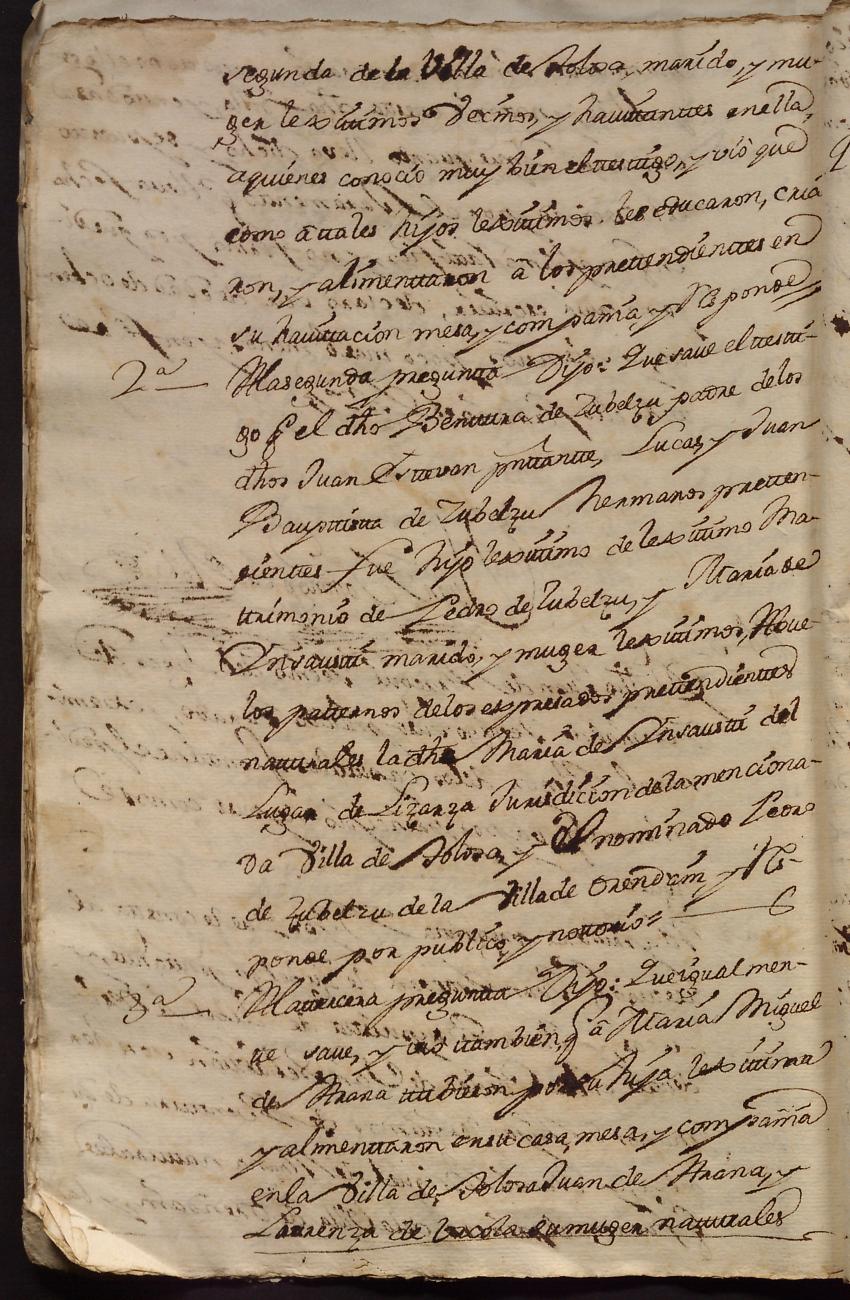 segunda de la Villa de Tolosa, marido, y mu-
ger lexittimos Vecinos, y havittanttes en ella,
a quienes conocio muy bien el testigo, y vió que
como a tales hijos lexittimos les educaron, cria
ron, y alimenttaron a los prettendienttes en
su havittacion mesa, y compañia, y Responde
2ª A la segunda pregunta Dijo: Que save el testti-
go q el dho Benttura de Zubelzu padre de los
dhos Juan Esttevan, Lucas, y Juan
Bauptistta de Zubelzu hermanos pretten-
dienttes fue hijo lexittimo de lexittimo Ma-
ttrimonio de Pedro de Zubelzu, y Maria de
Ynsausti marido, y muger lexittimos, Abue-
los patternos de los expresados prettendienttes
natturales la dha Maria de Ynsausti del
Lugar de Lizarza Jurisdicion de la menciona-
da Villa de Tolosa, y el nominado Pedro
de Zubelzu de la Villa de Orendain, y Res-
ponde por publico, y nottorio=
3ª A la ttercera pregunta Dijo: Que igualmen-
tte save, y vió ttambien q á Maria Miguel
de Arana ttubieron por su hija lexittima
y alimenttaron en su casa, mesa, y compañia
en la Villa de Tolosa Juan de Arana, y
Laurenza de su muger natturales